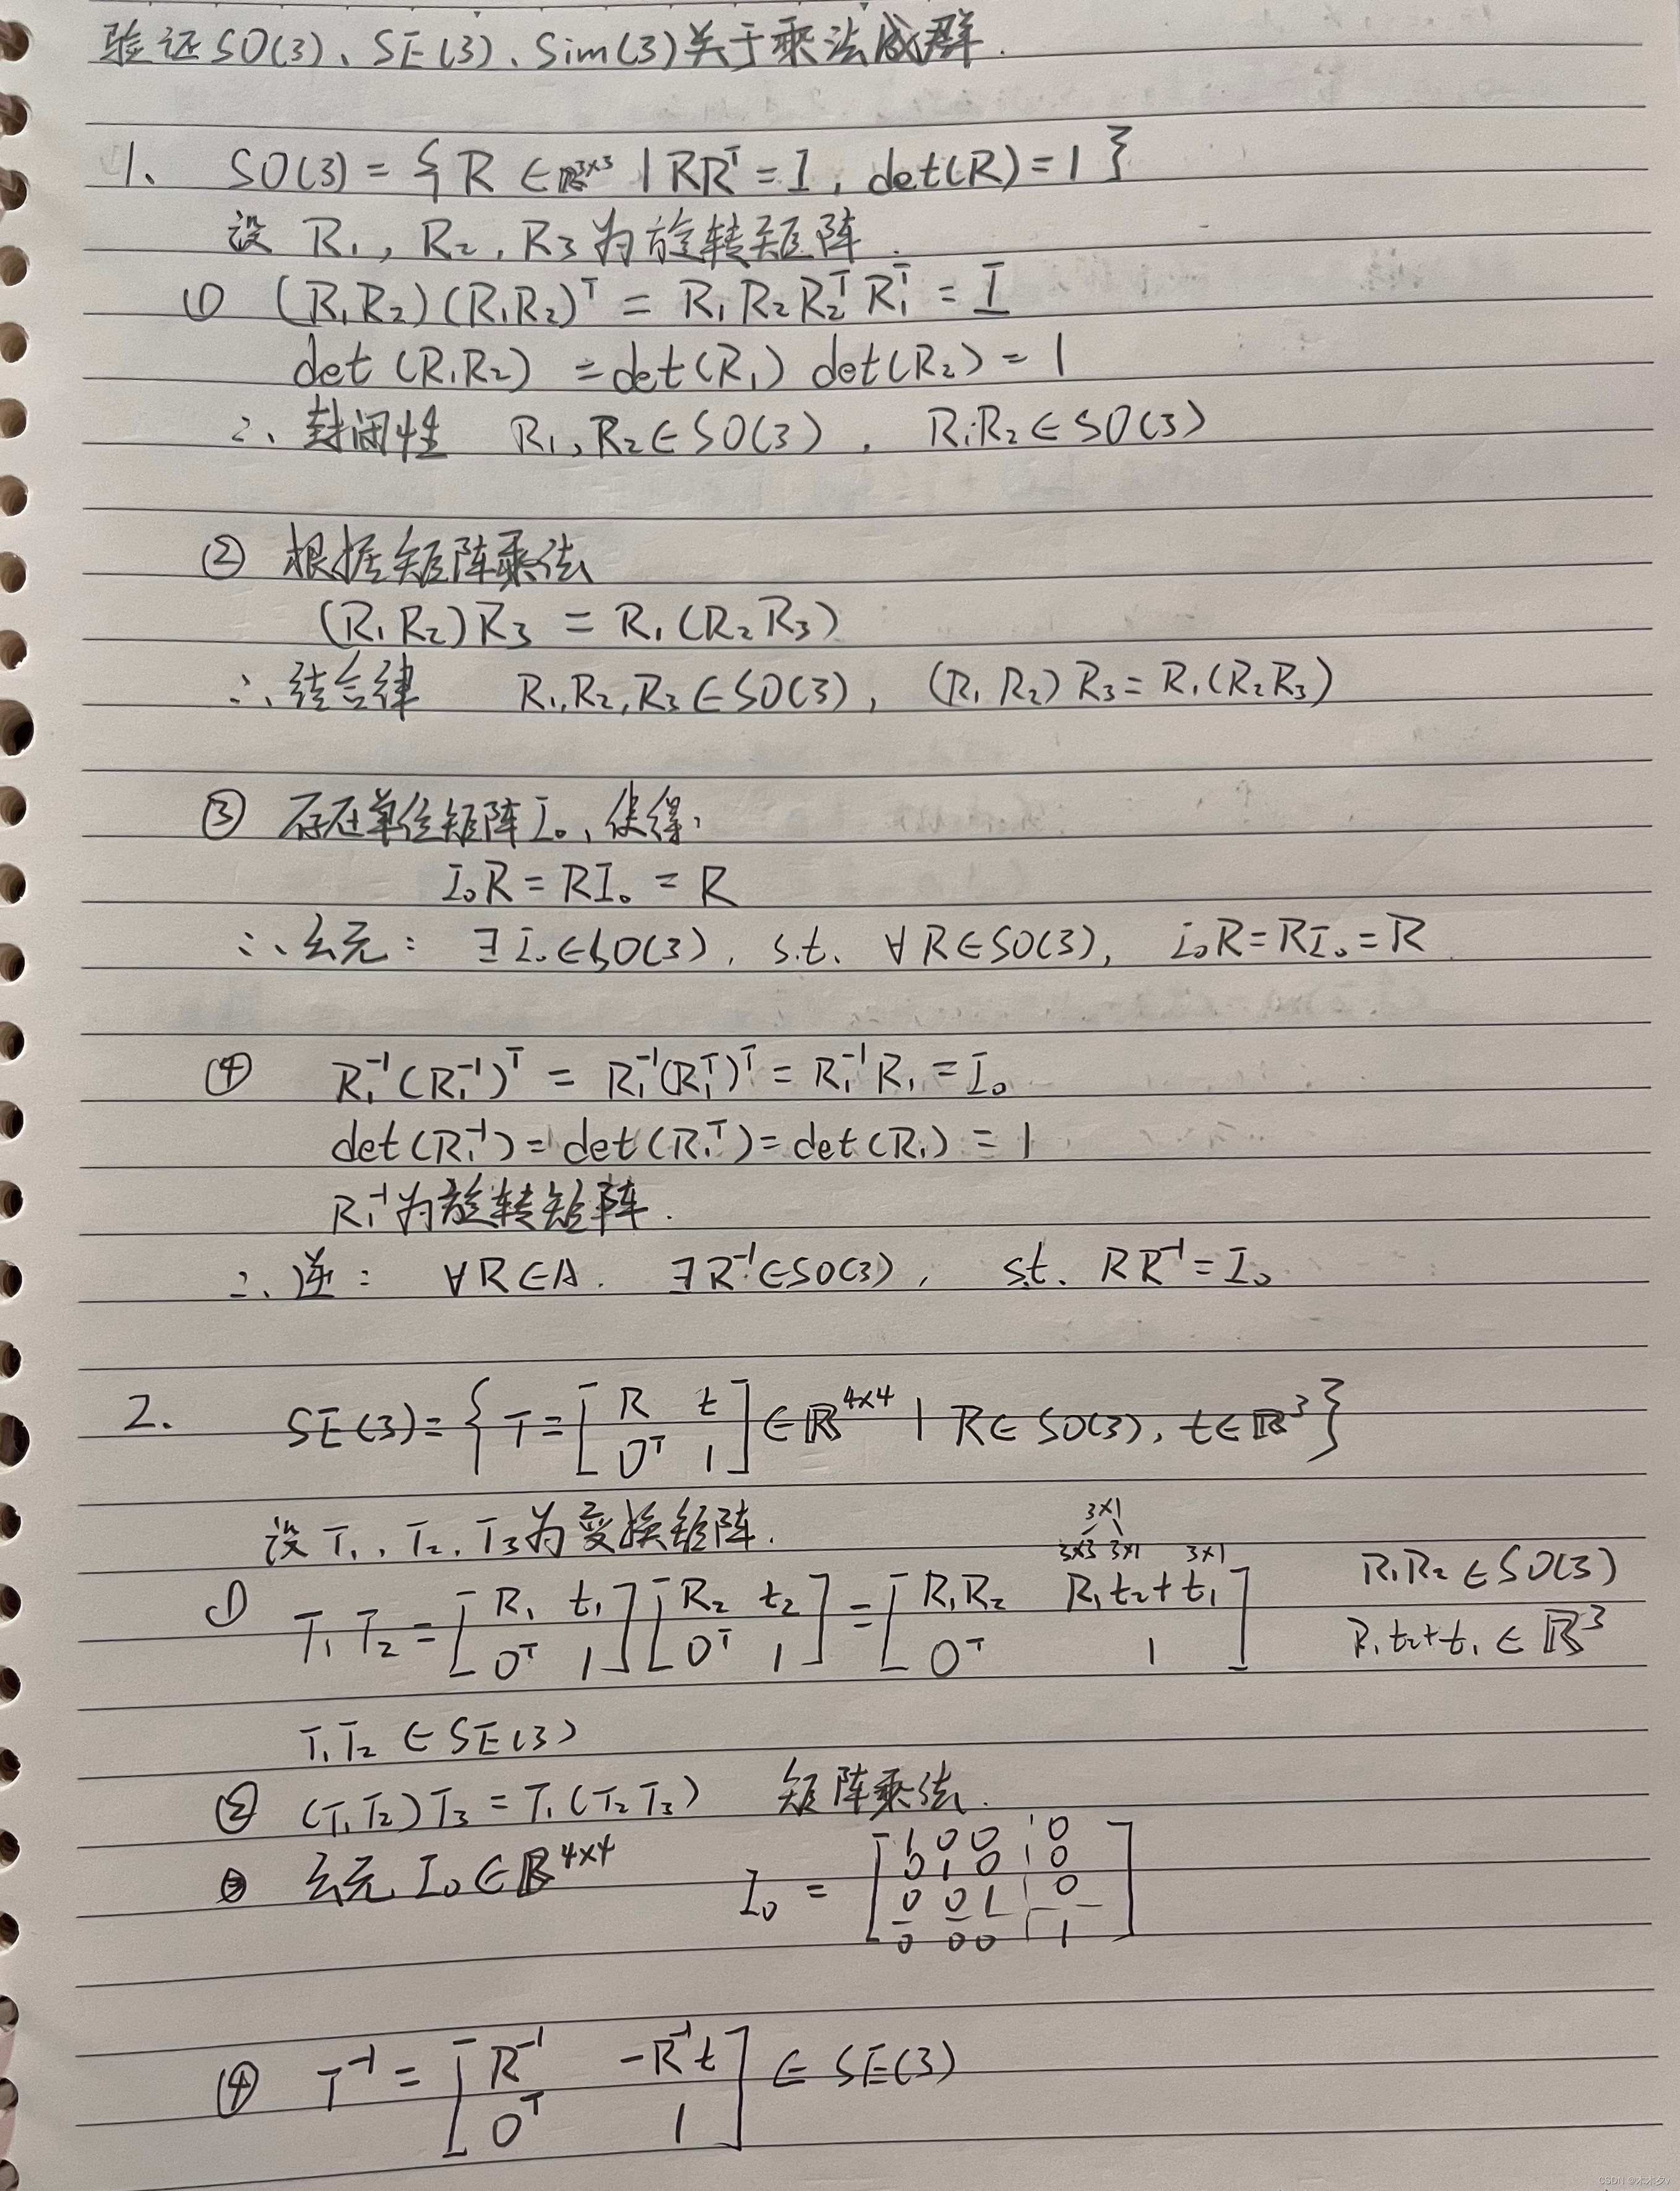 验证SO(3)、SE(3)、Sim(3)关于乘法成群.
1、 SO(3) = { R ∈ ℝ³ˣ³ | RRᵀ = I, det(R) = 1 }
设 R₁, R₂, R₃为旋转矩阵.
① (R₁R₂)(R₁R₂)ᵀ = R₁R₂R₂ᵀR₁ᵀ = I
det(R₁R₂) = det(R₁) det(R₂) = 1
∴ 封闭性 R₁, R₂ ∈ SO(3), R₁R₂ ∈ SO(3)
② 根据矩阵乘法
(R₁R₂)R₃ = R₁(R₂R₃)
∴ 结合律 R₁, R₂, R₃ ∈ SO(3), (R₁R₂)R₃ = R₁(R₂R₃)
③ 存在单位矩阵I₀, 使得,
I₀R = RI₀ = R
∴ 幺元: ∃ I₀ ∈ SO(3), s.t. ∀ R ∈ SO(3), I₀R = RI₀ = R.
④ R₁⁻¹(R₁⁻¹)ᵀ = R₁⁻¹(R₁ᵀ)ᵀ = R₁⁻¹R₁ = I₀
det(R₁⁻¹) = det(R₁ᵀ) = det(R₁) = 1
R₁⁻¹为旋转矩阵.
∴ 逆: ∀R ∈ A. ∃R⁻¹ ∈ SO(3), s.t. RR⁻¹ = I₀
2. SE(3) = { T = [ R t ; 0ᵀ 1 ] ∈ ℝ⁴ˣ⁴ | R ∈ SO(3), t ∈ ℝ³ }
设 T₁, T₂, T₃为变换矩阵.
3×1
3×3 3×1 3×1
① T₁T₂ = [ R₁ t₁ ; 0ᵀ 1 ] [ R₂ t₂ ; 0ᵀ 1 ] = [ R₁R₂ R₁t₂+t₁ ; 0ᵀ 1 ] R₁R₂ ∈ SO(3)
R₁t₂+t₁ ∈ ℝ³
T₁T₂ ∈ SE(3)
② (T₁T₂)T₃ = T₁(T₂T₃) 矩阵乘法.
③ 幺元 I₀ ∈ ℝ⁴ˣ⁴ I₀ = [ 1 0 0 0 ; 0 1 0 0 ; 0 0 1 0 ; 0 0 0 1 ]
④ T⁻¹ = [ R⁻¹ -R⁻¹t ; 0ᵀ 1 ] ∈ SE(3)